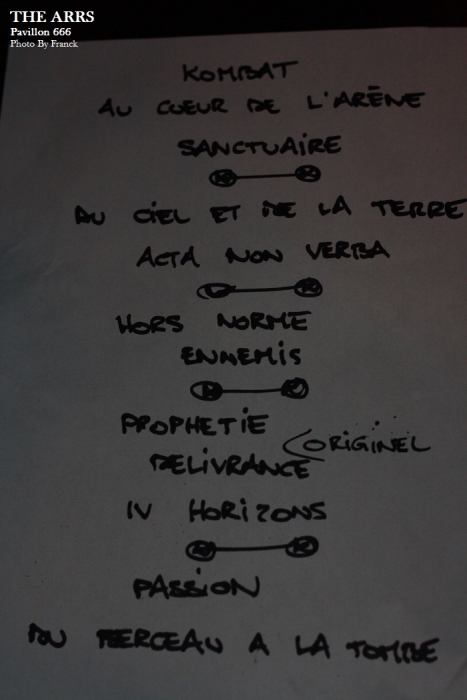 THE ARRS
Pavillon 666
Photo By Franck
KOMBAT
AU CUEUR DE L'ARÈNE
SANCTUAIRE
AU CIEL ET DE LA TERRE
ACTA NON VERBA
HORS NORME
ENNEMIS
PROPHETIE
ORIGINEL
DELIVRANCE
IV HORIZONS
PASSION
DU BERCEAU A LA TOMBE